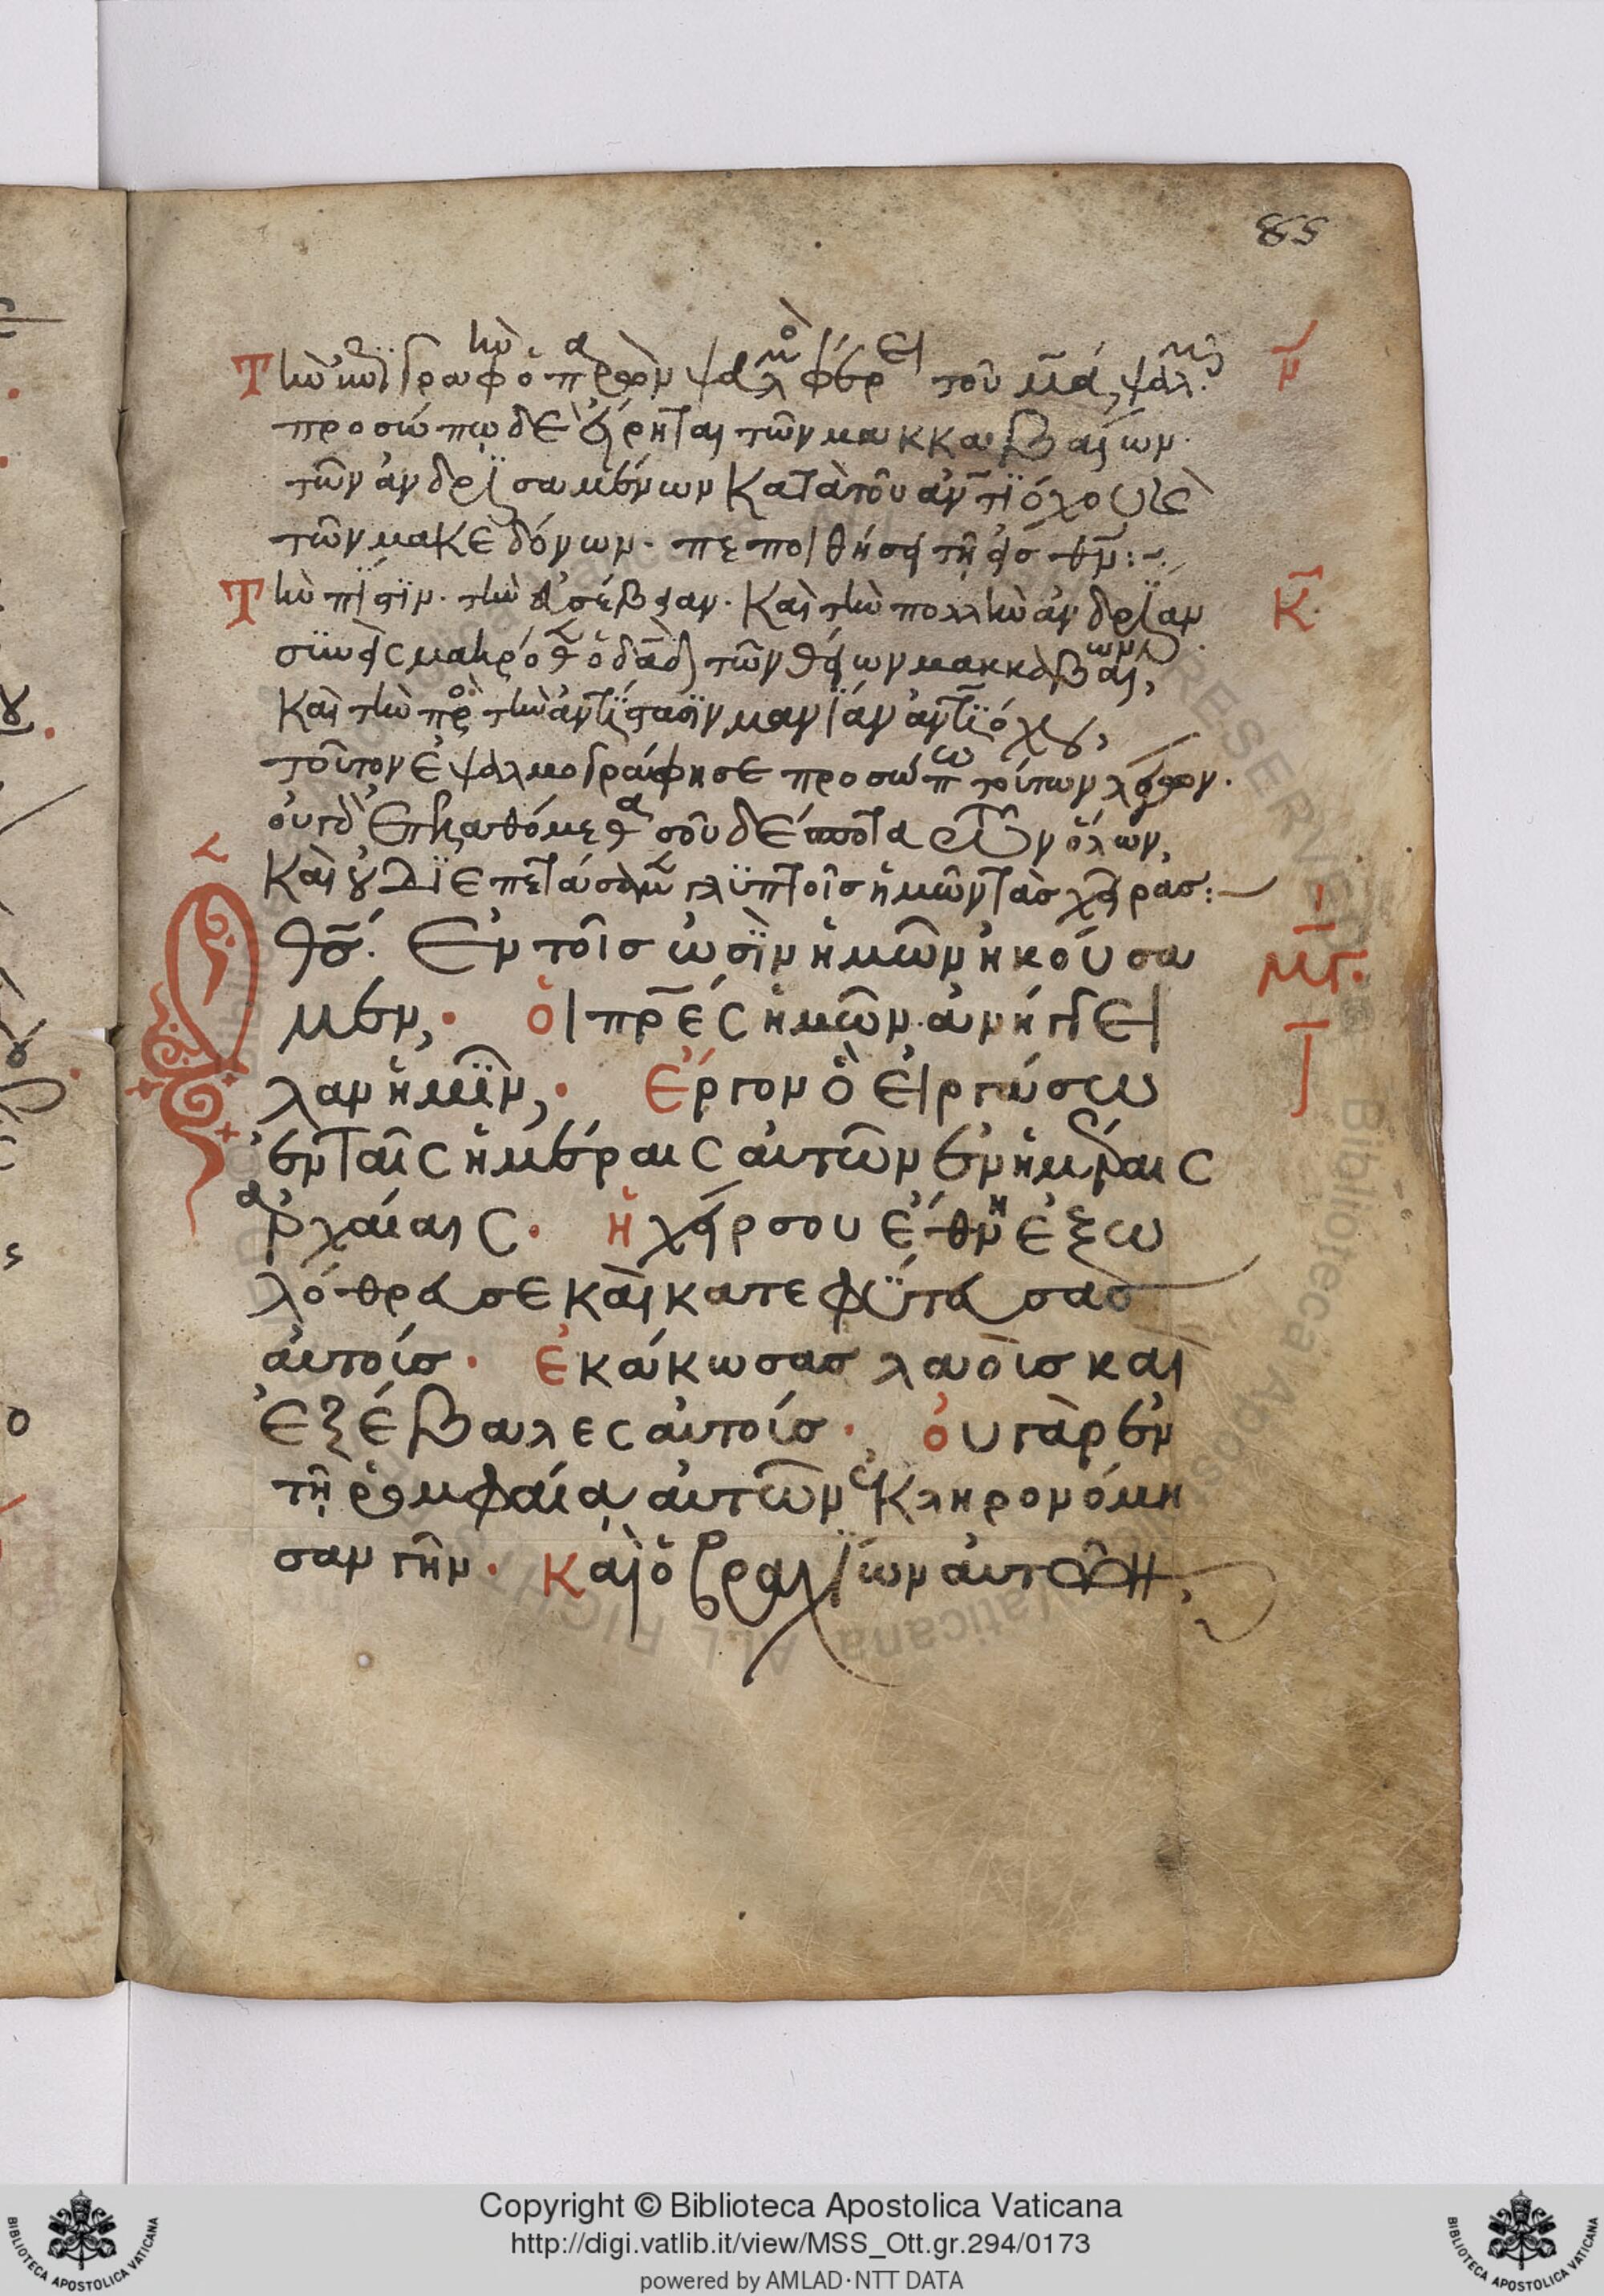 85
Τὴν αὐτὴν γραφὴν ὁ παρὼν ψαλμὸς φέρει τοῦ μα ψαλμοῦ
προσώπω δὲ εἴρηται τῶν μακκαβαίων
τῶν ἀνδρϊσαμένων κατὰ τοῦ ἀντιόχου
τῶν μακεδόνων·
Τὴν πίστϊν· τὴν εὐσέβειαν· καὶ τὴν πολλὴν ἀνδρΐαν
τῶν θείων μακκαβαίων
καὶ τὴν πρὸς τὴν ἀντίστασϊν μανΐαν ἀντϊόχου,
τοῦτον ἐψαλμογράφησε προσώπω τούτων λέγων·
οὐκ ἐπελαθόμεθα σοῦ δέσποτα τῶν ὅλων,
καὶ οὐ διεπετάσαμεν γλϋπτοῖσ ἡμῶν τὰσ χεῖρασ:
Ὁ θσ. Ἐν τοῖσ ὠσὶν ἡμῶν ἠκούσα
μεν, · ὁι πρες ἡμῶν ἀνήγγει
λαν ἡμῖν, · Ἔργον ὃ εἰργάσω
ἐν ταῖς ἡμέραις αὐτῶν ἐν ἡμέραις
ἀρχαίαις · ἡ χείρ σου ἔθνη ἐξω
λόθρευσε καὶ κατεφΰτευσασ
αὐτούσ · ἐκάκωσασ λαοὺσ καὶ
ἐξέβαλες αὐτούσ · ὀυ γὰρ ἐν
τῆ ῥομφαία αὐτῶν ἐκληρονόμη
σαν γῆν · καὶ ὁ βραχΐων αὐτῶν
κ
μγ
Copyright © Biblioteca Apostolica Vaticana
http://digi.vatlib.it/view/MSS_Ott.gr.294/0173
powered by AMLAD·NTT DATA
BIBLIOTECA APOSTOLICA VATICANA
BIBLIOTECA APOSTOLICA VATICANA